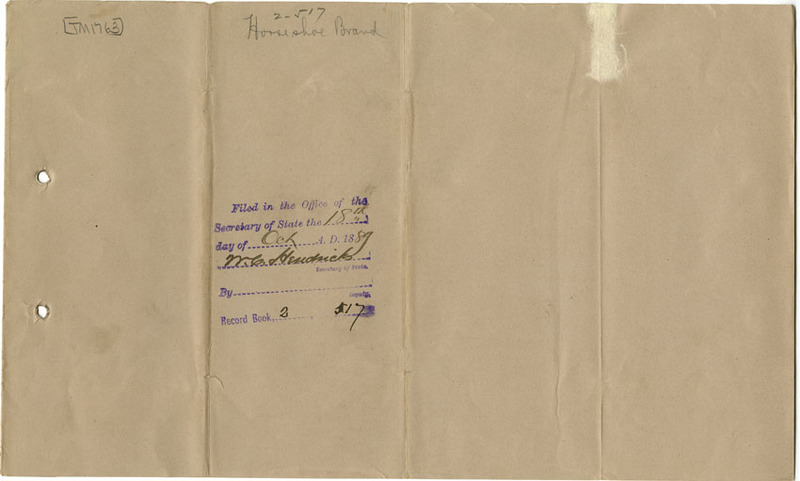 [TM1763]
2-517
Horseshoe Brand
Filed in the Office of the
Secretary of State the 18th
day of Oct A. D. 1889
W. C. Hendricks
Secretary of State.
By
Deputy.
Record Book 2 517